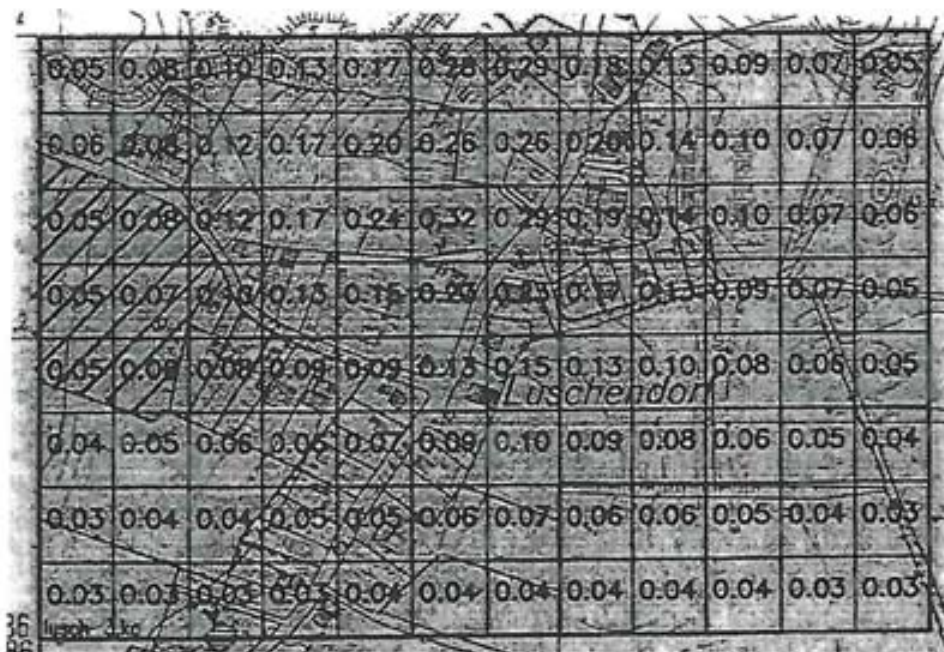 0.05 0.08 0.10 0.13 0.17 0.28 0.29 0.18 0.13 0.09 0.07 0.05
0.06 0.08 0.12 0.17 0.20 0.26 0.26 0.20 0.14 0.10 0.07 0.06
0.05 0.08 0.12 0.17 0.24 0.32 0.29 0.19 0.14 0.10 0.07 0.06
0.05 0.07 0.13 0.15 0.20 0.23 0.17 0.13 0.09 0.07 0.05
0.05 0.06 0.08 0.09 0.09 0.13 0.15 0.13 0.10 0.08 0.06 0.05
Luschendorf
0.04 0.05 0.06 0.06 0.07 0.09 0.10 0.09 0.08 0.06 0.05 0.04
0.03 0.04 0.04 0.05 0.05 0.06 0.07 0.06 0.06 0.05 0.04 0.03
0.03 0.03 0.03 0.03 0.04 0.04 0.04 0.04 0.04 0.04 0.03 0.03
36